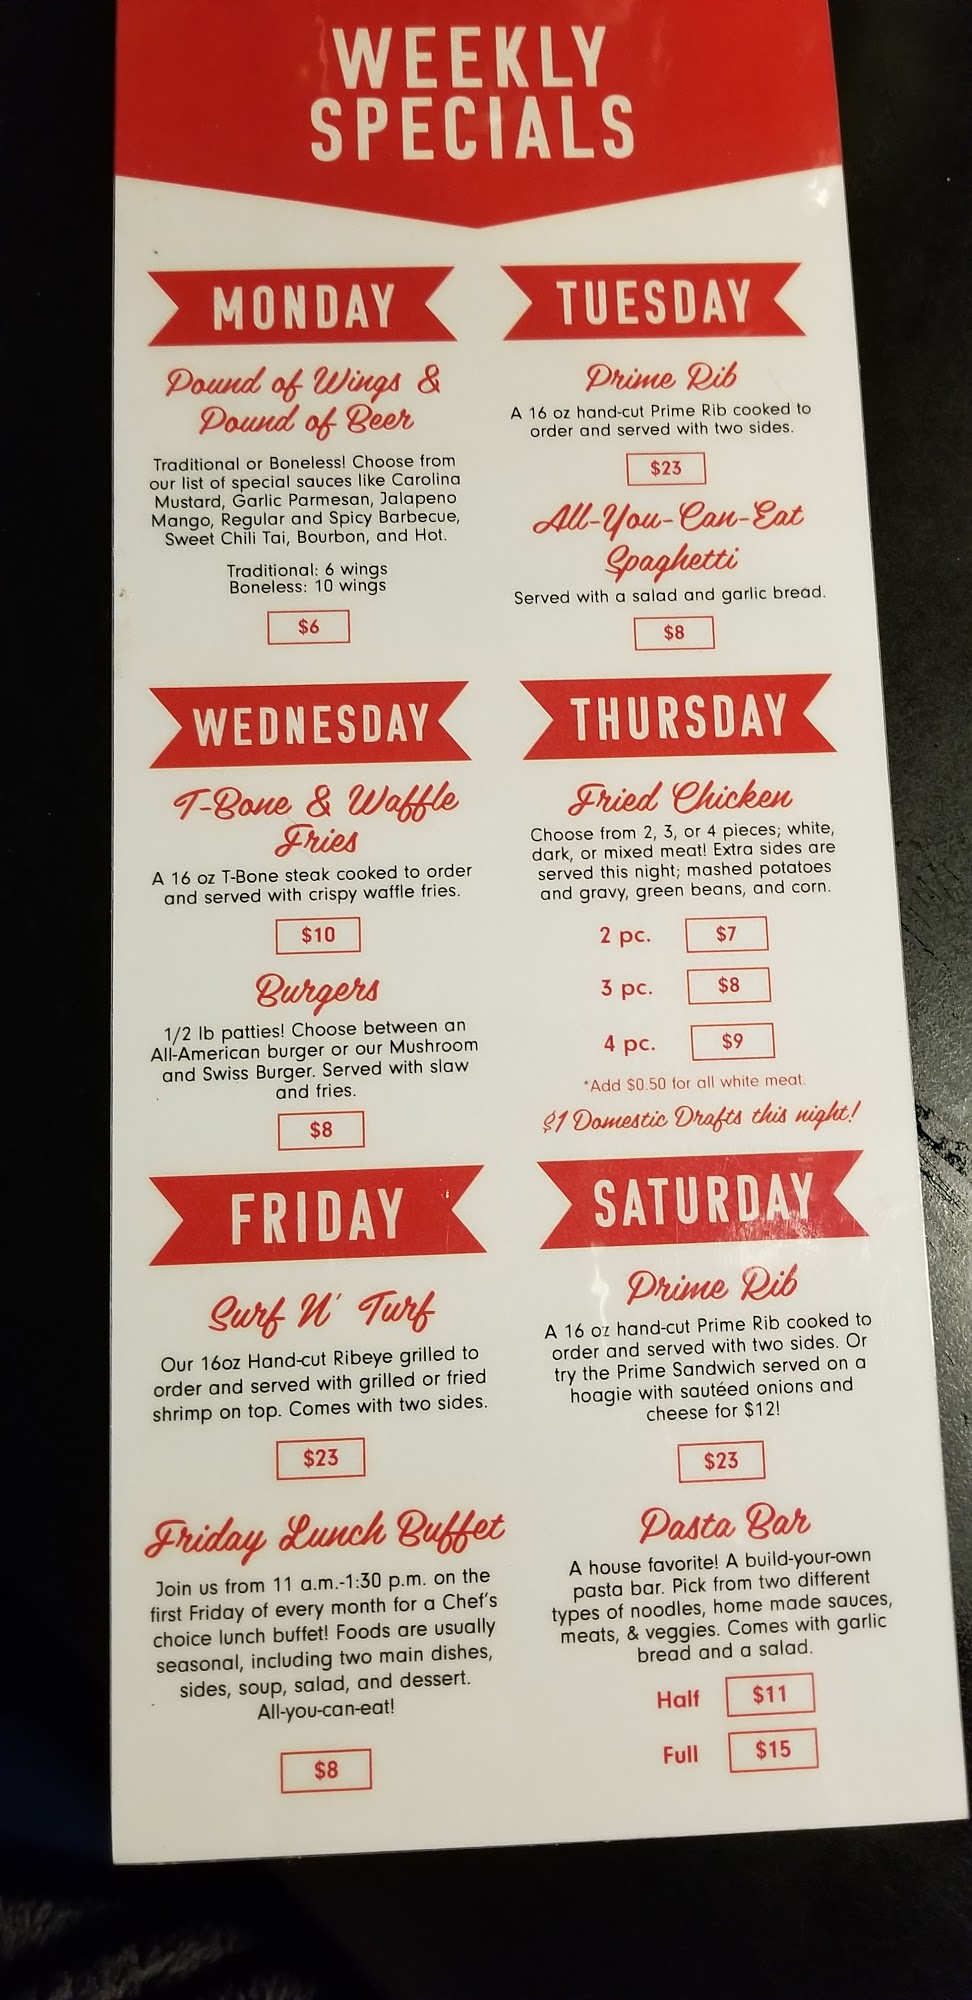 WEEKLY
SPECIALS
MONDAY
Pound of Wings &
Pound of Beer
Traditional or Boneless! Choose from
our list of special sauces like Carolina
Mustard, Garlic Parmesan, Jalapeno
Mango, Regular and Spicy Barbecue,
Sweet Chili Tai, Bourbon, and Hot.
Traditional: 6 wings
Boneless: 10 wings
$6
TUESDAY
Prime Rib
A 16 oz hand-cut Prime Rib cooked to
order and served with two sides.
$23
All-You-Can-Eat
Spaghetti
Served with a salad and garlic bread.
$8
WEDNESDAY
T-Bone & Waffle
Fries
A 16 oz T-Bone steak cooked to order
and served with crispy waffle fries.
$10
Burgers
1/2 lb patties! Choose between an
All-American burger or our Mushroom
and Swiss Burger. Served with slaw
and fries.
$8
THURSDAY
Fried Chicken
Choose from 2, 3, or 4 pieces; white,
dark, or mixed meat! Extra sides are
served this night; mashed potatoes
and gravy, green beans, and corn.
2 pc. $7
3 pc. $8
4 pc. $9
*Add $0.50 for all white meat.
$1 Domestic Drafts this night!
FRIDAY
Surf N' Turf
Our 16oz Hand-cut Ribeye grilled to
order and served with grilled or fried
shrimp on top. Comes with two sides.
$23
Friday Lunch Buffet
Join us from 11 a.m.-1:30 p.m. on the
first Friday of every month for a Chef's
choice lunch buffet! Foods are usually
seasonal, including two main dishes,
sides, soup, salad, and dessert.
All-you-can-eat!
$8
SATURDAY
Prime Rib
A 16 oz hand-cut Prime Rib cooked to
order and served with two sides. Or
try the Prime Sandwich served on a
hoagie with sautéed onions and
cheese for $12!
$23
Pasta Bar
A house favorite! A build-your-own
pasta bar. Pick from two different
types of noodles, home made sauces,
meats, & veggies. Comes with garlic
bread and a salad.
Half $11
Full $15